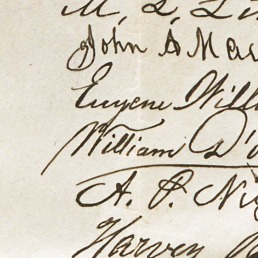 M. L. Li
John A Mac
Eugene Willi
William D'
A. P. Ni
Harvey